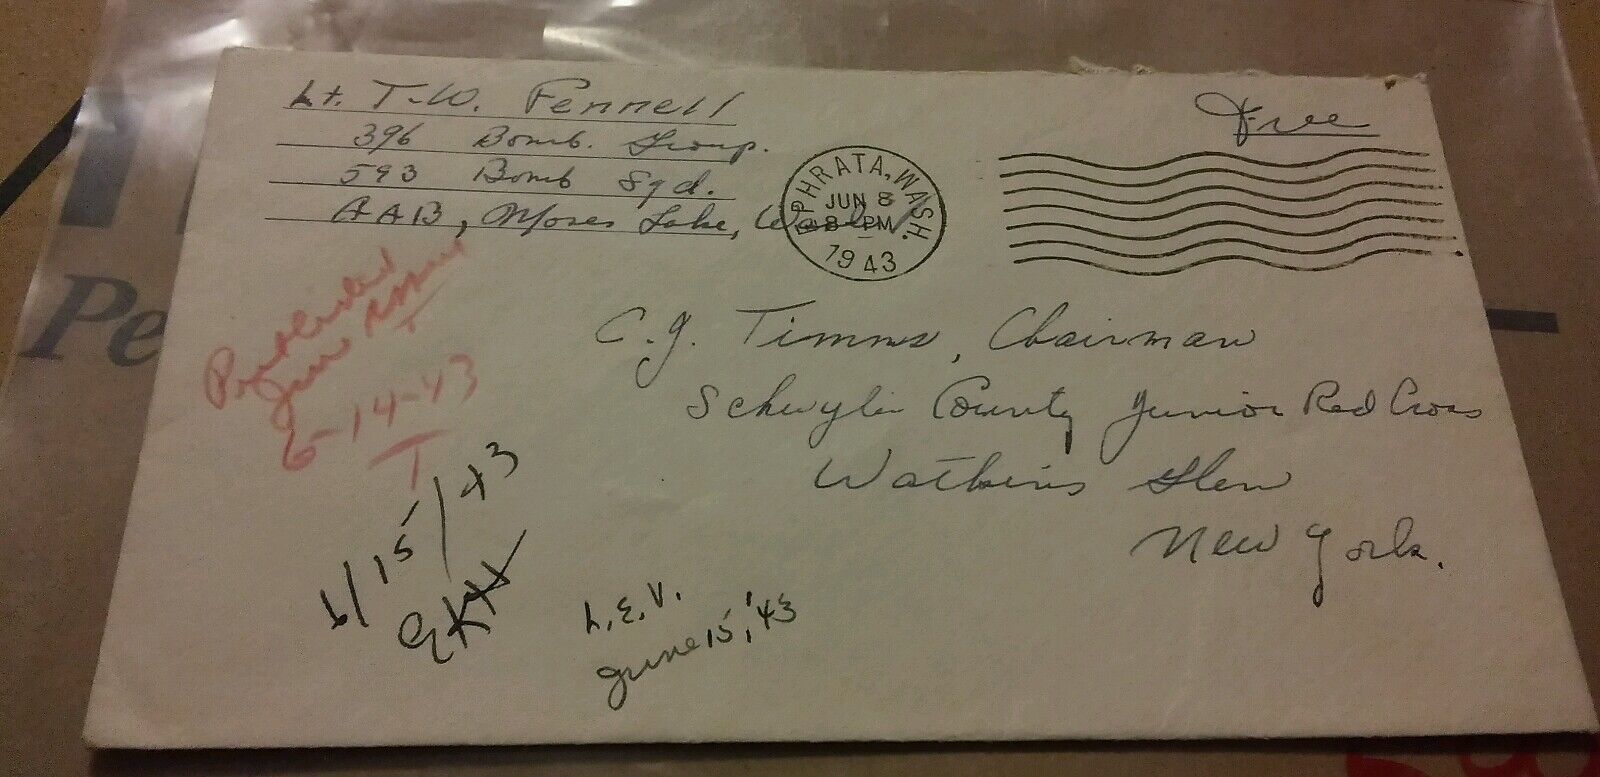 Lt. T. W. Fennell
396 Bomb. Group.
593 Bomb Sqd.
AAB, Moses Lake, Wash
Free
EPHRATA, WASH.
JUN 8
8 PM
1943
C. J. Timms, Chairman
Schuyler County Junior Red Cross
Watkins Glen
New York.
Published
6-14-43
T
6/15/43
L.E.V.
June 15, '43
Pe